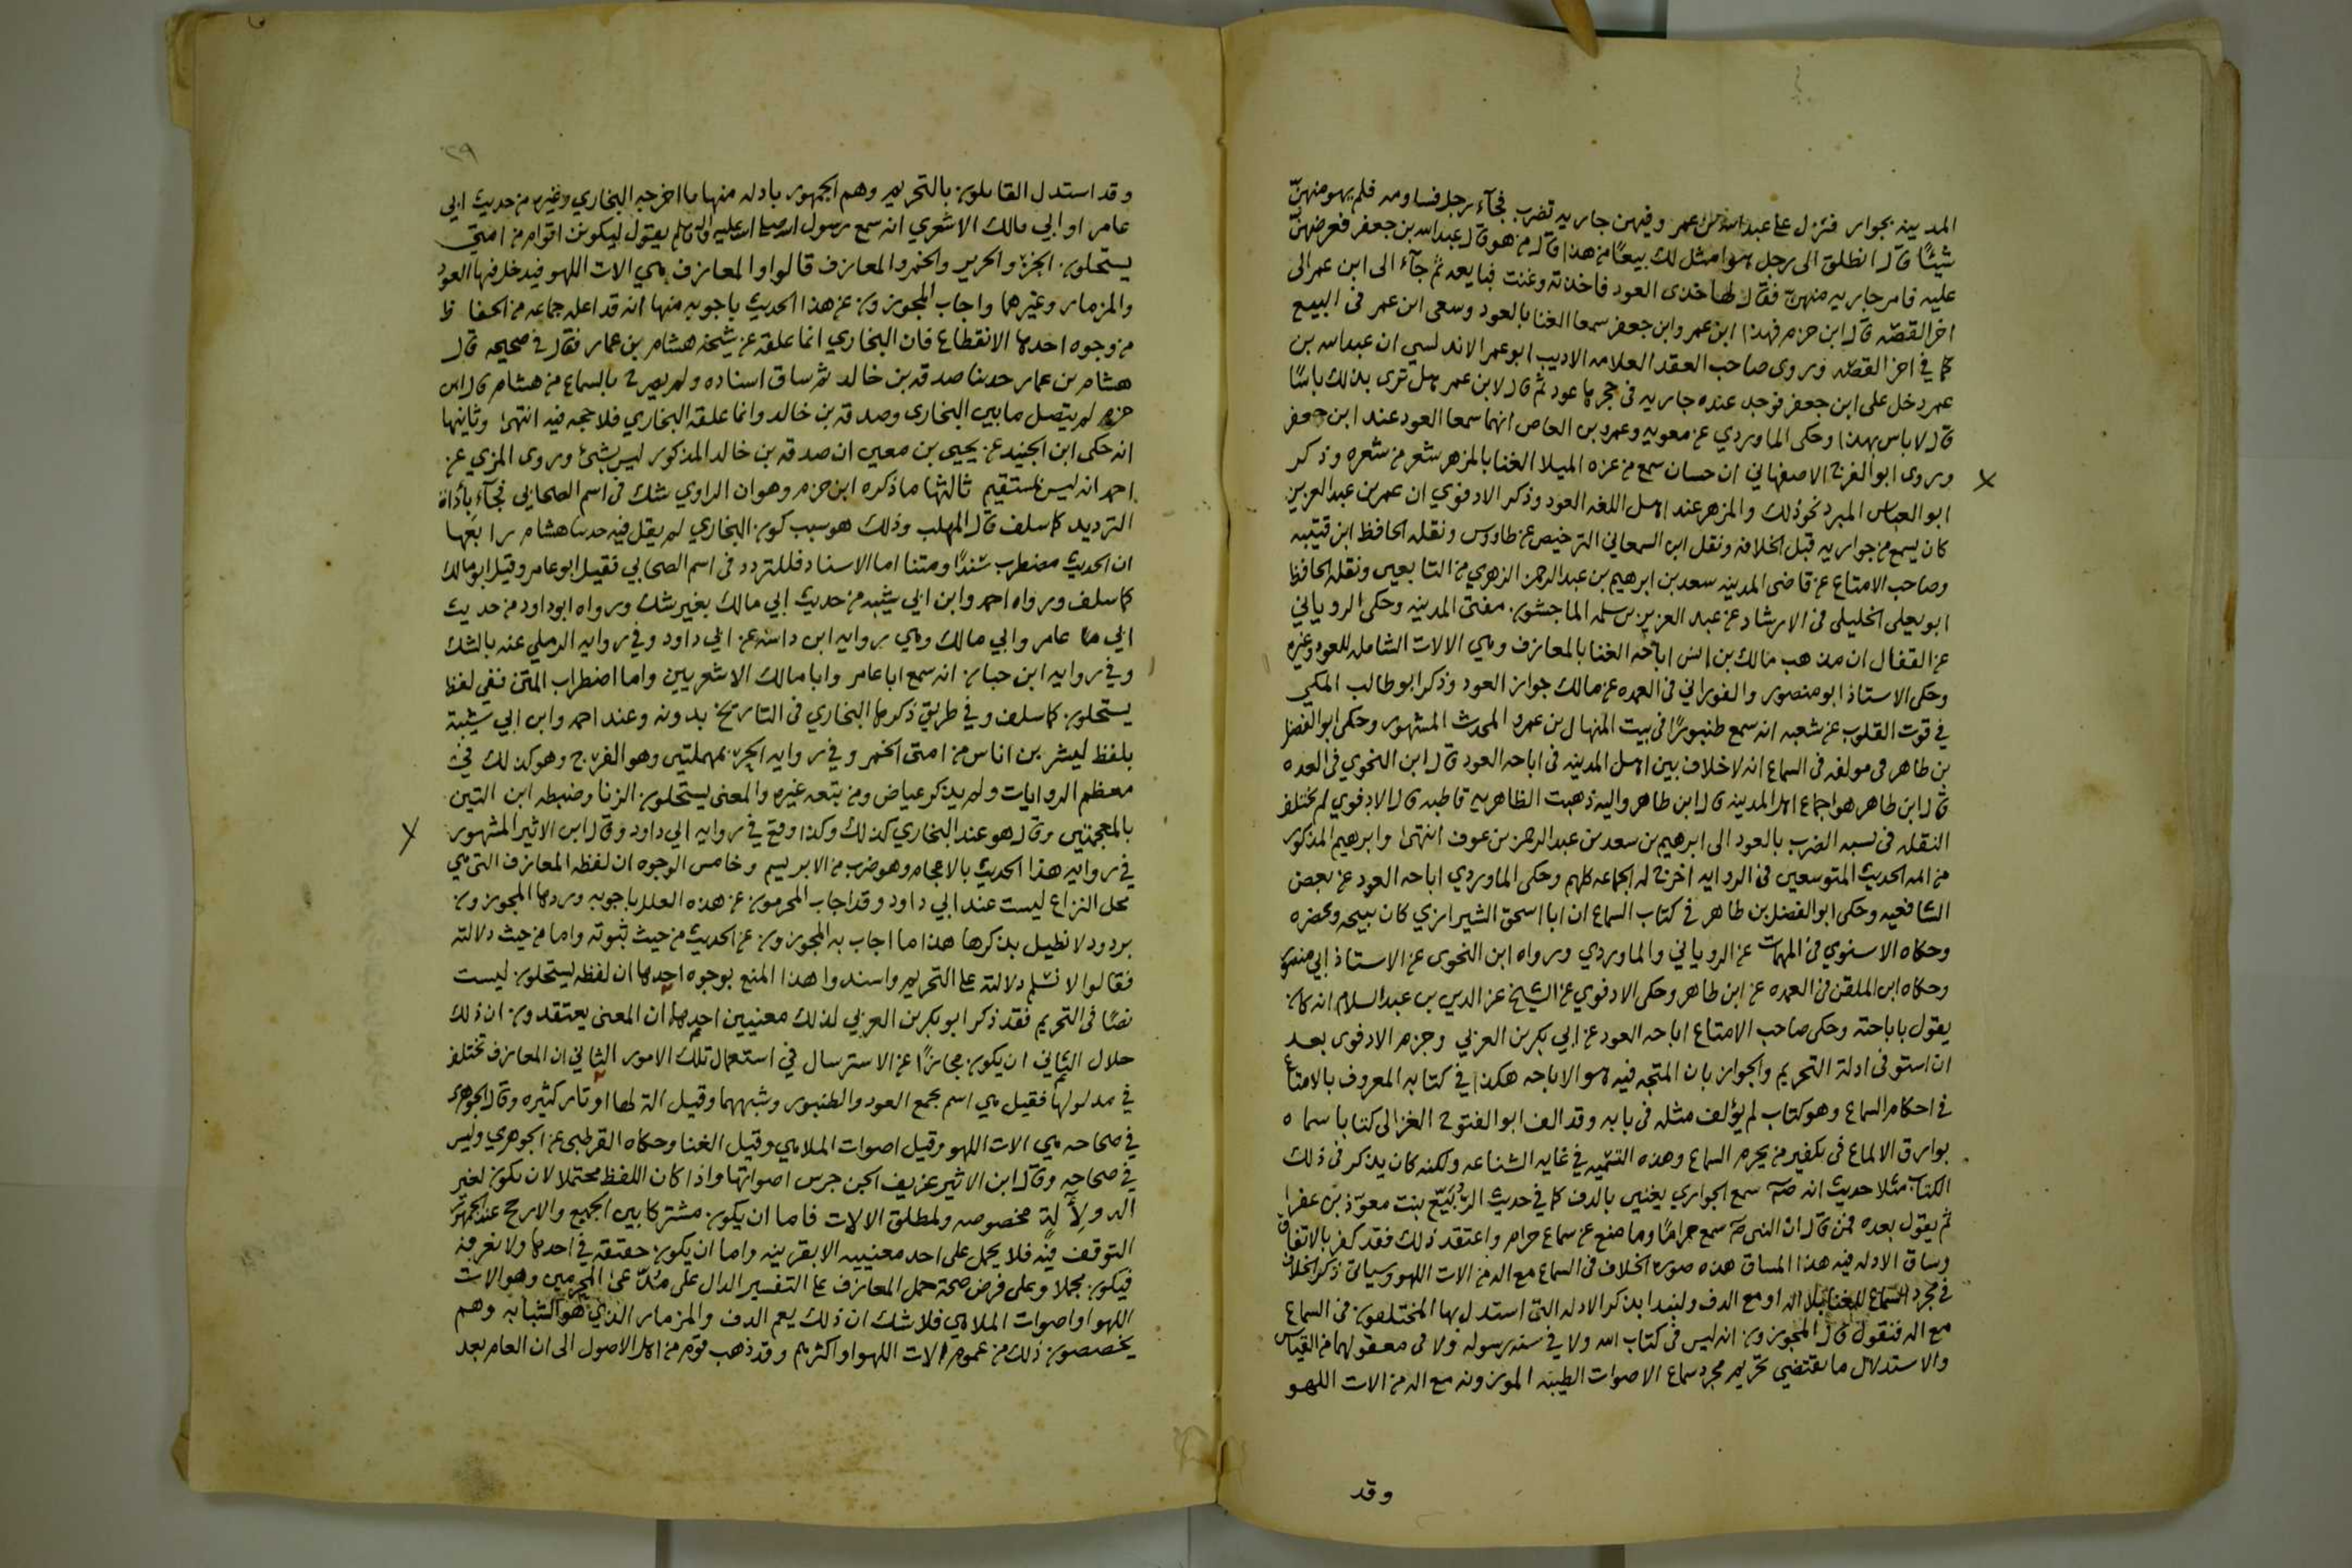 المدينه بجوار فنزل على عبدالله بن عمر وفيهن جاريه تضرب فجآء رجل فساومه فلم يهو منهنّ
شيئًا قال انطلق الى رجل هو امثل لك بيعًا من هذا قال من هو قال عبدالله بن جعفر فعرضهنّ
عليه فامر جاريه منهنّ فقال لها خذى العود فاخذته وغنت فبايعه ثم جآء الى ابن عمر الى
اخر القصّه قال ابن حزم فهذا ابن عمر وابن جعفر سمعا الغنا بالعود وسعى ابن عمر فى البيع
كما في اخر القصّه وروى صاحب العقد العلامه الاديب ابو عمر الاندلسي ان عبدالله بن
عمر دخل على ابن جعفر فوجد عنده جاريه فى حجرها عود ثم قال لابن عمر هل ترى بذلك باسًا
قال لا باس بهذا وحكى الماوردي عن معويه وعمرو بن العاص انهما سمعا العود عند ابن جعفر
وروى ابو الفرج الاصفهاني ان حسان سمع من عزه الميلا الغنا بالمزهر بشعر من شعره وذكر
ابو العباس المبرد نحو ذلك والمزهر عند اهل اللغه العود وذكر الادفوي ان عمر بن عبدالعزيز
كان يسمع من جواريه قبل الخلافه ونقل ابن السمعاني الترخيص عن طاووس ونقله الحافظ ابن قتيبه
وصاحب الامتاع عن قاضى المدينه سعد بن ابرهيم بن عبدالرحمن الزهري من التابعين ونقله الحافظ
ابو يعلى الخليلى فى الارشاد عن عبد العزيز بن سلمه الماجشون مفتى المدينه وحكى الروياني
عن القفال ان مذهب مالك بن انس اباحه الغنا بالمعازف وهي الالات الشامله للعود وغيره
وحكى الاستاذ ابو منصور والفوراني فى العمده عن مالك جواز العود وذكر ابو طالب المكي
في قوت القلوب عن شعبه انه سمع طنبورًا فى بيت المنهال بن عمرو المحدث المشهور وحكى ابو الفضل
بن طاهر فى مولفه فى السماع انه لا خلاف بين اهل المدينه فى اباحه العود قال ابن النحوي في العمده
قال ابن طاهر هو اجماع اهل المدينه قال ابن طاهر واليه ذهبت الظاهريه قاطبه قال الادفوي لم يختلف
النقله فى نسبه الضرب بالعود الى ابرهيم بن سعد بن عبدالرحمن بن عوف انتهى وابرهيم المذكور
من ائمه الحديث المتوسعين فى الروايه اخرج له الجماعه كلهم وحكى الماوردي اباحه العود عن بعض
الشافعيه وحكى ابو الفضل بن طاهر في كتاب السماع ان ابا اسحق الشيرازي كان يبيحه ويحضره
وحكاه الاسنوي فى المهمات عن الروياني والماوردي ورواه ابن النحوى عن الاستاذ ابي منصور
وحكاه ابن الملقن فى العمده عن ابن طاهر وحكى الادفوي عن الشيخ عز الدين بن عبدالسلام انه كان
يقول باباحته وحكى صاحب الامتاع اباحه العود عن ابي بكر بن العربي وجزم الادفوى بعد
ان استوفى ادلة التحريم والجواز بان المتجه فيه هو الاباحه هكذا في كتابه المعروف بالامتاع
في احكام السماع وهو كتاب لم يؤلف مثله فى بابه وقد الف ابو الفتوح الغزالى كتابا سماه
بوارق الالماع فى تكفير من يحرم السماع وهذه التسميه في غايه الشناعه ولكنه كان يذكر فى ذلك
الكتاب مثلا حديث انه صلم سمع الجواري يغنين بالدف كما في حديث الرُّبَيّع بنت معوّذ بن عفرا
ثم يقول بعده فمن قال ان النبى صلم سمع حرامًا وما منع عن سماع حرام واعتقد ذلك فقد كفر بالاتفاق
وساق الادله فيه هذا المساق هذه صورة الخلاف فى السماع مع اله من الات اللهو وسياتى ذكر الخلاف
في مجرد السماع للغنا بلا اله او مع الدف ولنبدا بذكر الادله التى استدل بها المختلفون فى السماع
مع اله فنقول قال المجوزون انه ليس فى كتاب الله ولا في سنه رسوله ولا فى معقولهما من القياس
والاستدلال ما يقتضي تحريم مجرد سماع الاصوات الطيبه الموزونه مع اله من الات اللهو
وقد
٢٩
وقد استدل القايلون بالتحريم وهم الجمهور بادله منها ما اخرجه البخاري وغيره من حديث ابي
عامر او ابي مالك الاشعري انه سمع رسول الله صلى الله عليه واله وسلم يقول ليكونن اقوام من امتى
يستحلون الخزّ والحرير والخمر والمعازف قالوا والمعازف هي الات اللهو فيدخل فيها العود
والمزمار وغيرهما واجاب المجوزون عن هذا الحديث باجوبه منها انه قد اعله جماعه من الحفاظ
من وجوه احدها الانقطاع فان البخاري انما علقه عن شيخه هشام بن عمار فقال فى صحيحه قال
هشام بن عمار حدثنا صدقه بن خالد ثم ساق اسناده ولم يصرح بالسماع من هشام قال ابن
حزم لم يتصل ما بين البخارى وصدقه بن خالد وانما علقه البخاري فلا حجه فيه انتهى وثانيها
انه حكى ابن الجنيد عن يحيى بن معين ان صدقه بن خالد المذكور ليس بشئ وروى المزي عن
احمد انه ليس بمستقيم ثالثها ما ذكره ابن حزم وهو ان الراوي شك فى اسم الصحابي فجآء بأداة
الترديد كما سلف قال المهلب وذلك هو سبب كون البخاري لم يقل فيه حدثنا هشام رابعها
ان الحديث مضطرب سندًا ومتنا اما الاسناد فللتردد فى اسم الصحابي فقيل ابو عامر وقيل ابو مالك
كما سلف ورواه احمد وابن ابي شيبه من حديث ابي مالك بغير شك ورواه ابو داود من حديث
ابي عامر وابي مالك وهي روايه ابن داسه عن ابي داود وفي روايه الرملي عنه بالشك
وفي روايه ابن حبان انه سمع ابا عامر وابا مالك الاشعريين واما اضطراب المتن ففي لفظ
يستحلون كما سلف وفي طريق ذكرها البخاري فى التاريخ بدونه وعند احمد وابن ابي شيبة
بلفظ ليشربن اناس من امتى الخمر وفي روايه الحِر بمهملتين وهو الفرج وهو كذلك في
معظم الروايات ولم يذكر عياض ومن تبعه غيره والمعنى يستحلون الزنا وضبطه ابن التين
بالمعجمتين وقال هو عند البخاري كذلك وكذا وقع في روايه ابي داود وقال ابن الاثير المشهور
في روايه هذا الحديث بالاعجام وهو ضرب من الابريسم وخامس الوجوه ان لفظه المعازف التى هي
محل النزاع ليست عند ابي داود وقد اجاب المحرمون عن هذه العلل باجوبه وردها المجوزون
بردود لا نطيل بذكرها هذا ما اجاب به المجوزون عن الحديث من حيث ثبوته واما من حيث دلالته
فقالوا لا نسلم دلالته على التحريم واسندوا هذا المنع بوجوه احدها ان لفظه يستحلون ليست
نصًا فى التحريم فقد ذكر ابو بكر بن العربي لذلك معنيين احدهما ان المعنى يعتقدون ان ذلك
حلال الثاني ان يكون مجازًا عن الاسترسال في استعمال تلك الامور الثاني ان المعازف تختلف
في مدلولها فقيل هي اسم يجمع العود والطنبور وشبههما وقيل الة لها اوتار كثيره وقال الجوهرى
في صحاحه هي الات اللهو وقيل اصوات الملاهي وقيل الغنا وحكاه القرطبى عن الجوهري وليس
في صحاحه وقال ابن الاثير عزيف الجن جرس اصواتها واذا كان اللفظ محتملا لان يكون لغير
اله ولآلة مخصوصه ولمطلق الالات فاما ان يكون مشتركا بين الجميع والارجح عند الجمهور
التوقف فيه فلا يحمل على احد معنييه الا بقرينه واما ان يكون حقيقه في احدها ولا نعرفه
فيكون مجملا وعلى فرض صحة حمل المعازف على التفسير الدال على مدّعى المحرمين وهو الات
اللهو او اصوات الملاهي فلا شك ان ذلك يعم الدف والمزمار الذي هو الشبابه وهم
يخصصون ذلك من عموم الات اللهو او اكثرهم وقد ذهب قوم من اهل الاصول الى ان العام بعد